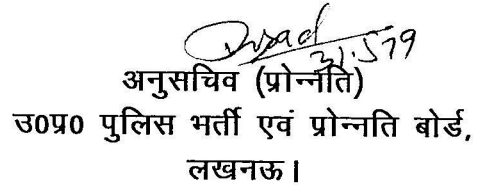 31.5.19
अनुसचिव (प्रोन्नति)
उ0प्र0 पुलिस भर्ती एवं प्रोन्नति बोर्ड,
लखनऊ।